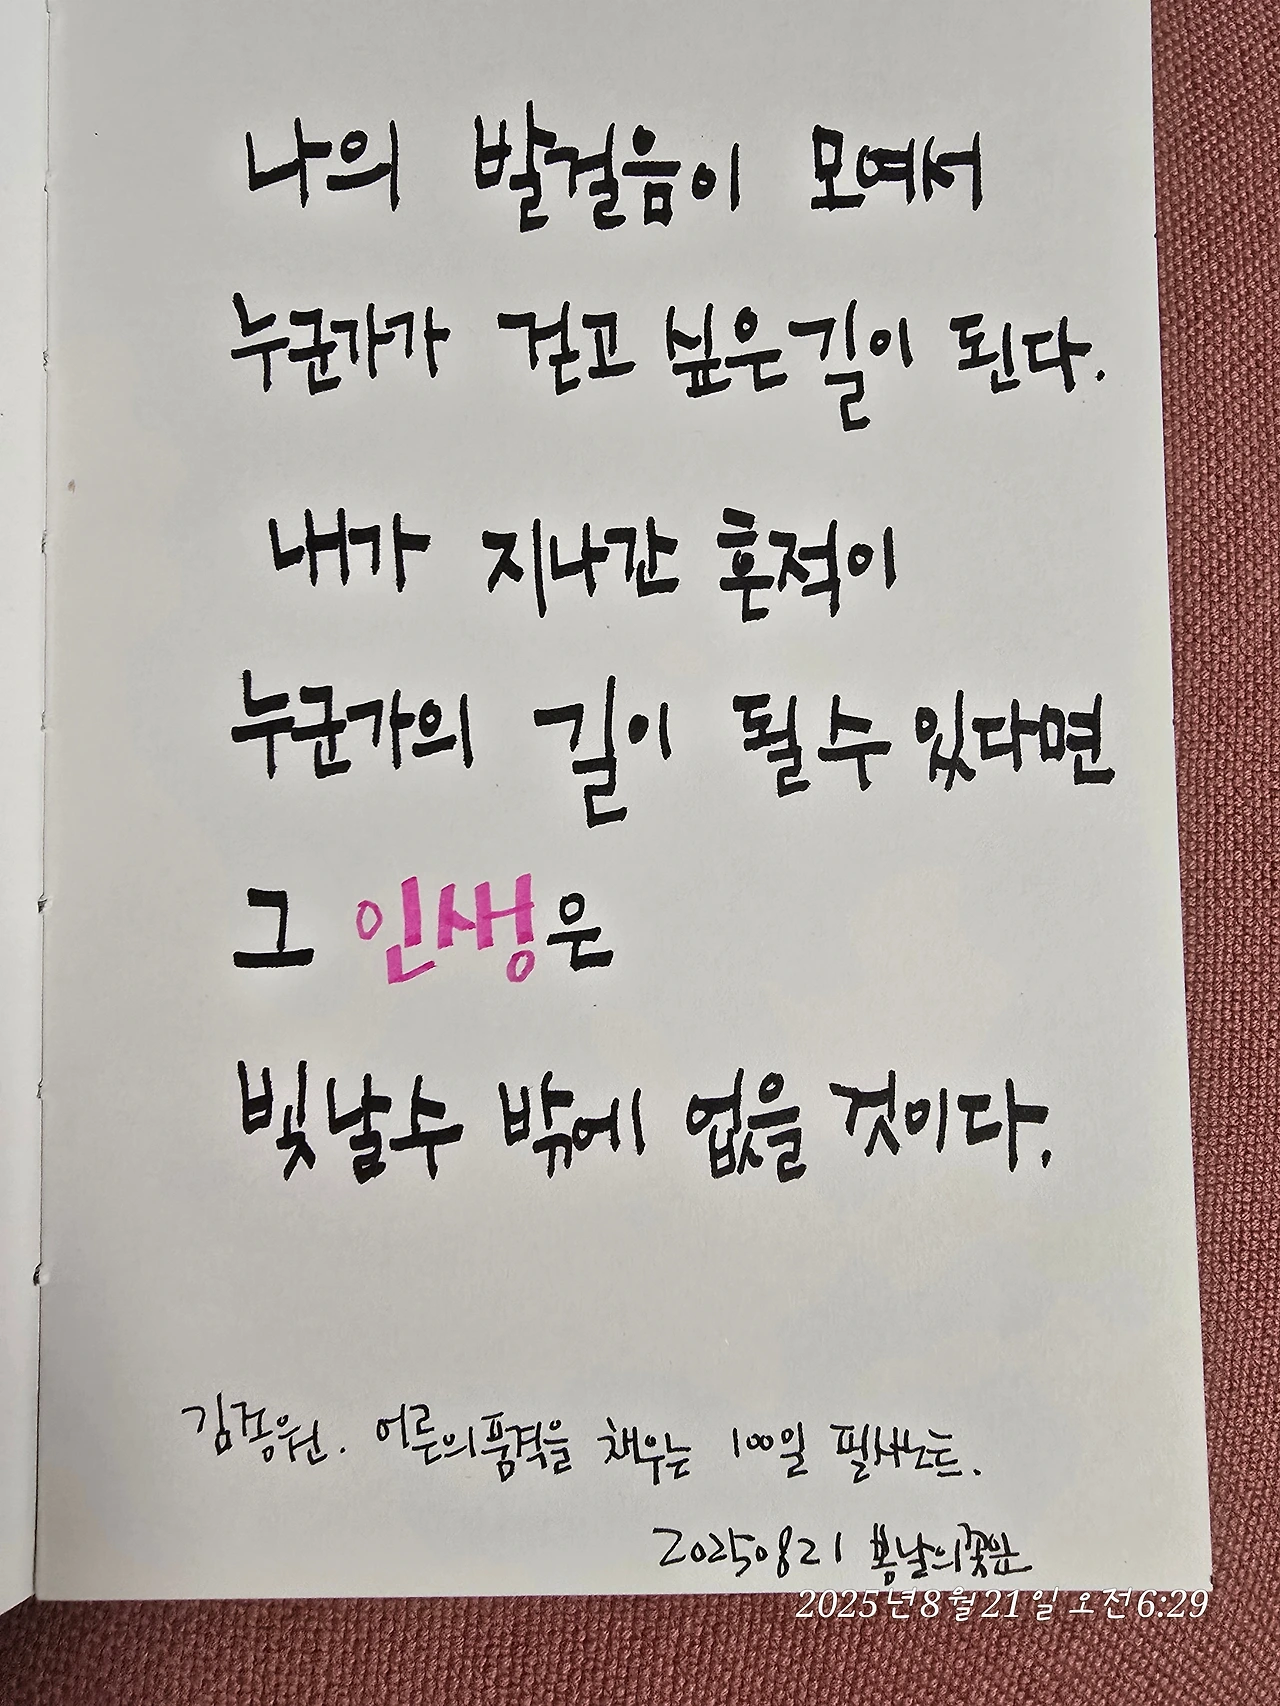 나의 발걸음이 모여서
누군가가 걷고 싶은 길이 된다.
내가 지나간 흔적이
누군가의 길이 될 수 있다면
그 인생은
빛날 수 밖에 없을 것이다.
김종원. 어른의 품격을 채우는 100일 필사노트.
20250821 봄날의꽃잎
2025년 8월 21일 오전 6:29